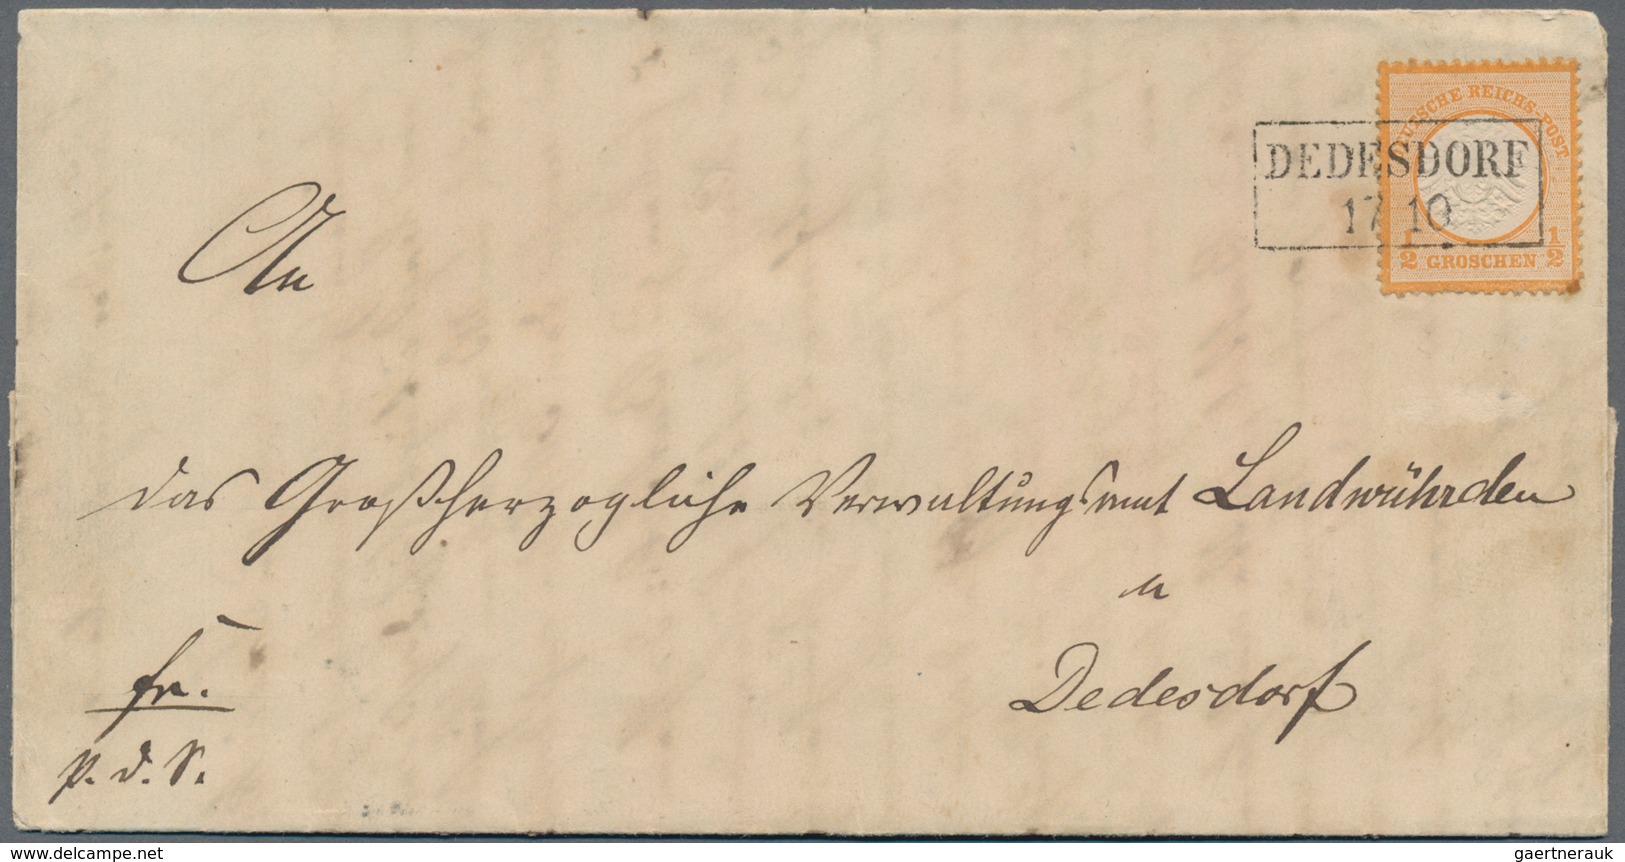 DEUTSCHE REICHS-POST
DEDESDORF
17 10
1/2 GROSCHEN 1/2
An
das Großherzogliche Verwaltungsamt Landwührden
Dedesdorf
fr.
p. d. S.
© www.delcampe.net
gaertnerauk